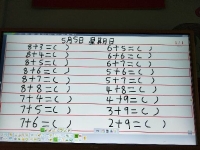 5月5日 星期日
8+3=( ) 6+5=( )
8+4=( ) 6+6=( )
8+5=( ) 6+7=( )
8+6=( ) 5+6=( )
8+7=( ) 5+7=( )
8+8=( ) 4+8=( )
7+4=( ) 4+9=( )
7+5=( ) 3+9=( )
7+6=( ) 2+9=( )